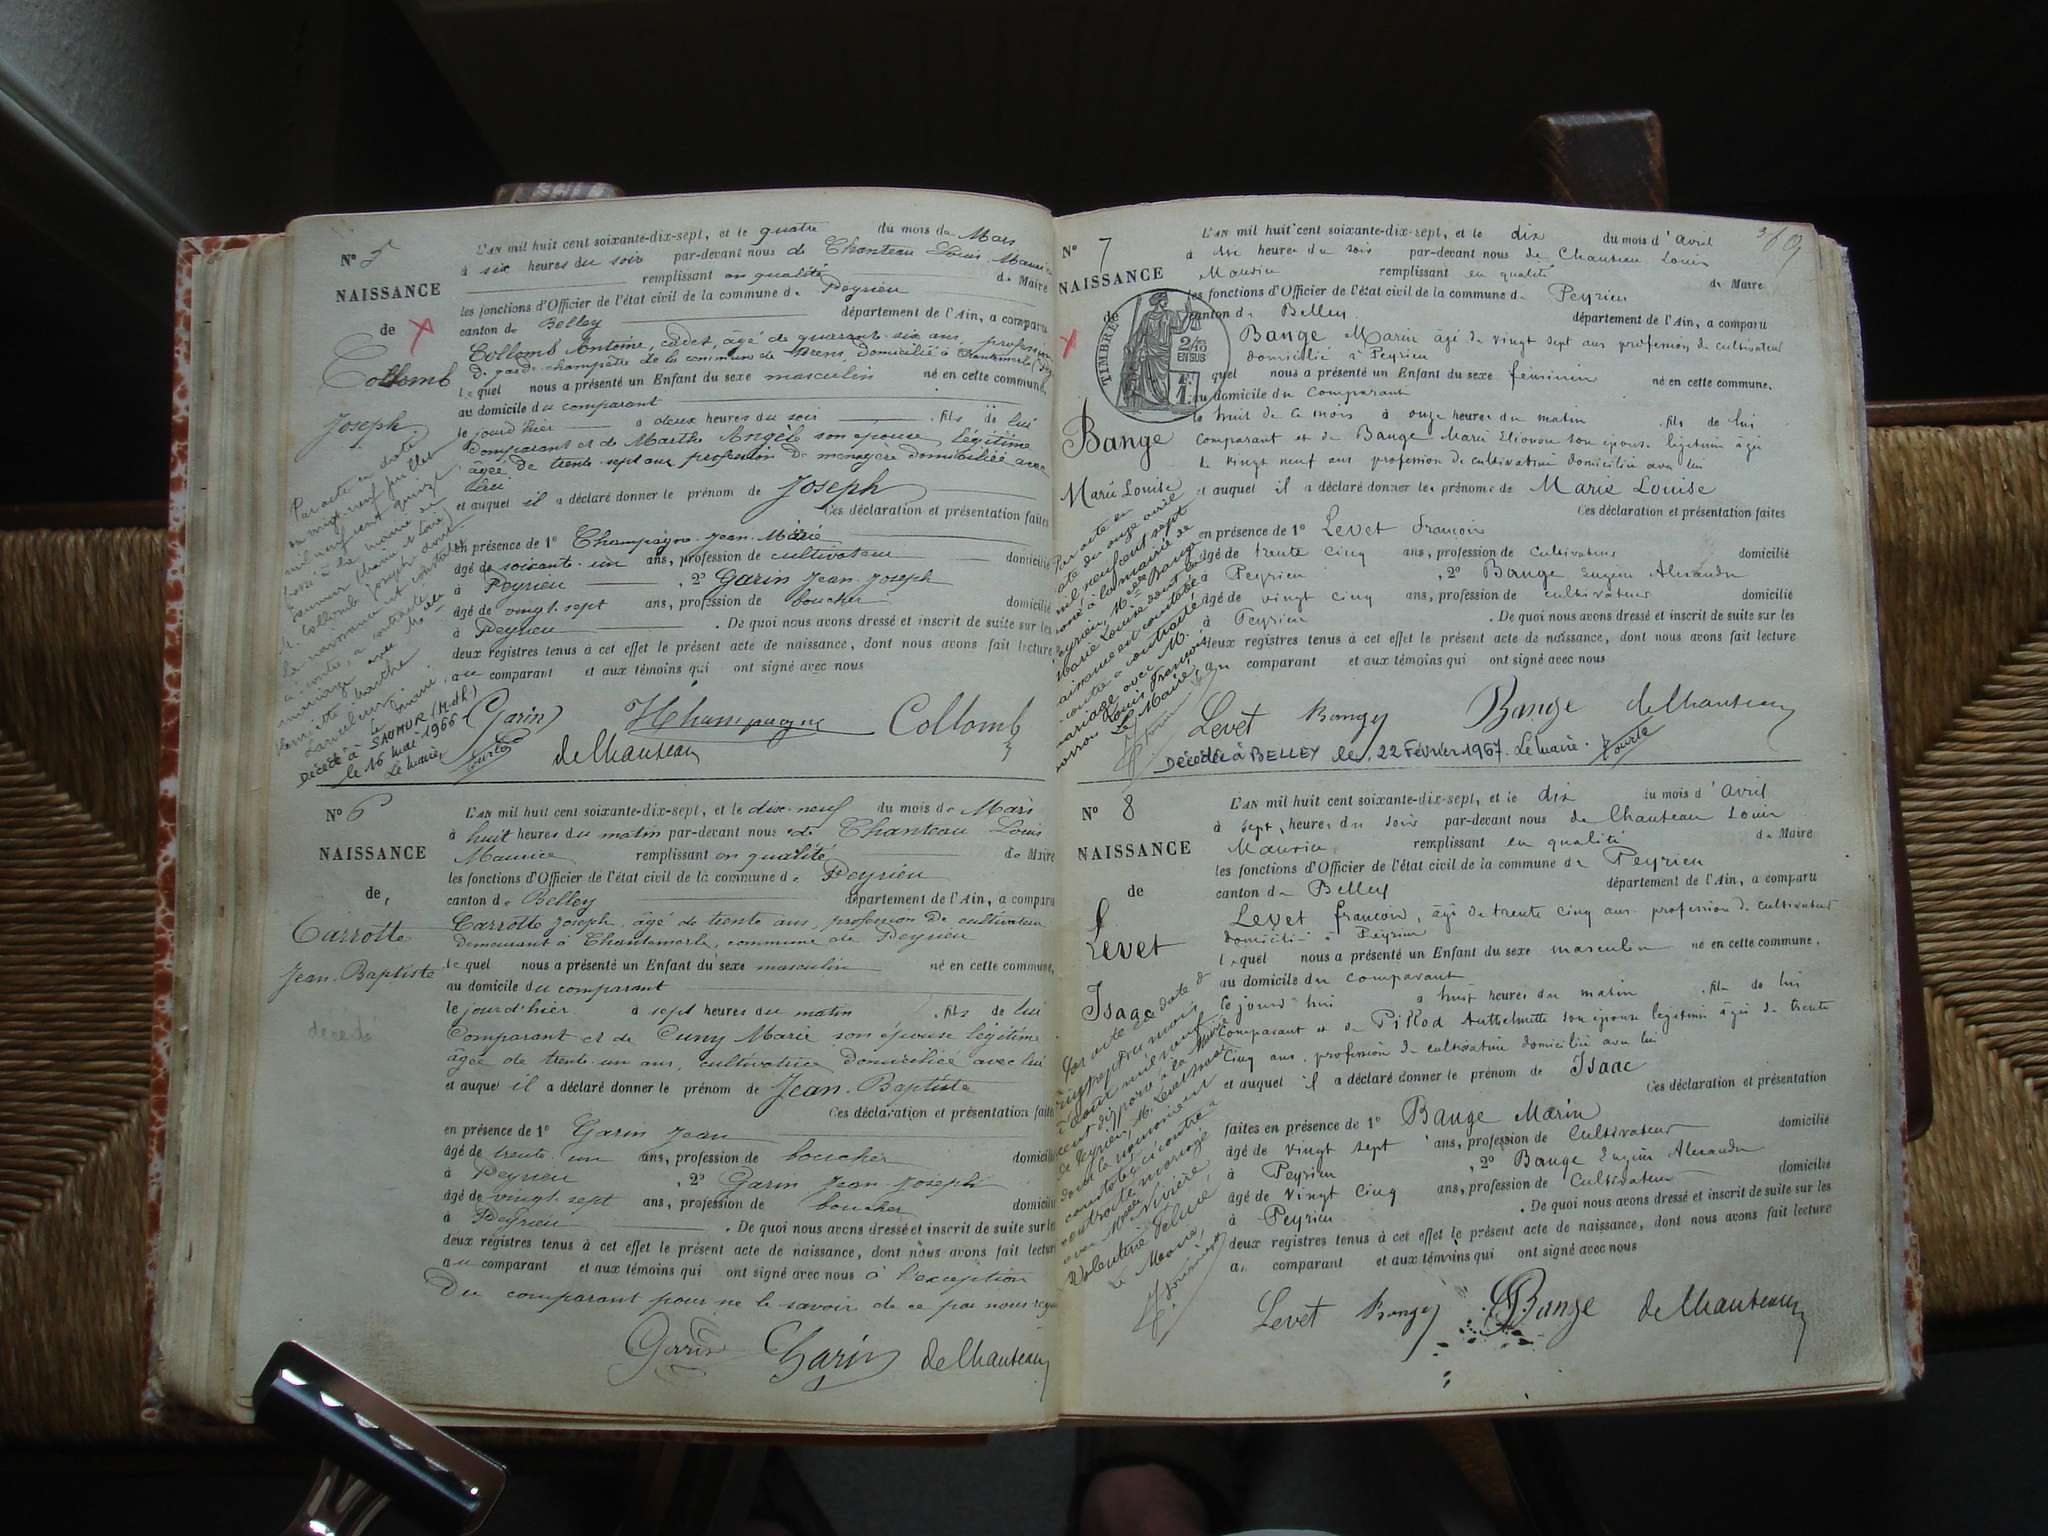 N° 5
NAISSANCE
de
Collomb
Joseph
L'AN mil huit cent soixante-dix-sept, et le quatre du mois de Mars
à six heures du soir par-devant nous de Chanteau Louis Maurice
remplissant en qualité de Maire
les fonctions d'Officier de l'état civil de la commune de Peyrieu
canton de Belley département de l'Ain, a comparu
Collomb Antoine, cadet, âgé de quarante-six ans, profession
de garde-champêtre de la commune de Brens, domicilié à Chantemerle
lequel nous a présenté un Enfant du sexe masculin né en cette commune,
au domicile du comparant
le jourd'hier à deux heures du soir fils de lui
Comparant et de Marthe Angèle son épouse légitime
âgée de trente-sept ans profession de ménagère domiciliée avec
lui
et auquel il a déclaré donner le prénom de Joseph
Ces déclaration et présentation faites
en présence de 1° Champagne Jean-Marie
âgé de soixante-un ans, profession de cultivateur domicilié
à Peyrieu , 2° Garin Jean-Joseph
âgé de vingt-sept ans, profession de boucher domicilié
à Peyrieu . De quoi nous avons dressé et inscrit de suite sur les
deux registres tenus à cet effet le présent acte de naissance, dont nous avons fait lecture
au comparant et aux témoins qui ont signé avec nous
Par acte en date
du vingt-neuf juillet
mil neuf cent quinze
passé à la mairie de
Saumur (Maine et Loire)
M. Collomb Joseph dont
la naissance est constatée
ci-contre, a contracté
mariage avec Melle
Marthe
le Maire,
Décédé à SAUMUR (M.&L.)
le 16 mai 1966
Le Maire,
Garin Champagne Collomb
de Chanteau
N° 6
NAISSANCE
de
Carrotte
Jean-Baptiste
décédé
L'AN mil huit cent soixante-dix-sept, et le dix-neuf du mois de Mars
à huit heures du matin par-devant nous de Chanteau Louis
Maurice remplissant en qualité de Maire
les fonctions d'Officier de l'état civil de la commune de Peyrieu
canton de Belley département de l'Ain, a comparu
Carrotte Joseph, âgé de trente ans, profession de cultivateur
demeurant à Chantemerle, commune de Peyrieu
lequel nous a présenté un Enfant du sexe masculin né en cette commune,
au domicile du comparant
le jourd'hier à sept heures du matin fils de lui
Comparant et de Cuny Marie son épouse légitime
âgée de trente-un ans, cultivatrice domiciliée avec lui
et auquel il a déclaré donner le prénom de Jean-Baptiste
Ces déclaration et présentation faites
en présence de 1° Garin Jean
âgé de trente-un ans, profession de boucher domicilié
à Peyrieu , 2° Garin Jean-Joseph
âgé de vingt-sept ans, profession de boucher domicilié
à Peyrieu . De quoi nous avons dressé et inscrit de suite sur les
deux registres tenus à cet effet le présent acte de naissance, dont nous avons fait lecture
au comparant et aux témoins qui ont signé avec nous à l'exception
Du comparant pour ne le savoir de ce par nous requis
Garin Garin de Chanteau
N° 7
NAISSANCE
de
TIMBRE
2/10
EN SUS
F.
1
Bange
Marie Louise
L'AN mil huit cent soixante-dix-sept, et le dix du mois d'Avril
à dix heures du soir par-devant nous de Chanteau Louis
Maurice remplissant en qualité de Maire
les fonctions d'Officier de l'état civil de la commune de Peyrieu
canton de Belley département de l'Ain, a comparu
Bange Marin âgé de vingt sept ans profession de cultivateur
domicilié à Peyrieu
lequel nous a présenté un Enfant du sexe féminin né en cette commune,
au domicile du comparant
le huit de ce mois à onze heures du matin fils de lui
comparant et de Bange Marie Eléonore son épouse légitime âgée
de vingt neuf ans profession de cultivatrice domiciliée avec lui
et auquel il a déclaré donner les prénoms de Marie Louise
Ces déclaration et présentation faites
en présence de 1° Levet françois
âgé de trente cinq ans, profession de cultivateur domicilié
à Peyrieu , 2° Bange Eugène Alexandre
âgé de vingt cinq ans, profession de cultivateur domicilié
à Peyrieu . De quoi nous avons dressé et inscrit de suite sur les
deux registres tenus à cet effet le présent acte de naissance, dont nous avons fait lecture
au comparant et aux témoins qui ont signé avec nous
Par acte en
date du onze avril
mil neuf cent sept
passé à la mairie de
Peyrieu, Melle Bange
Marie Louise dont la
naissance est constatée
ci-contre a contracté
mariage avec M.
Louis François
Le Maire,
Levet Bange Bange de Chanteau
Décédée à BELLEY le 22 Février 1967. Le Maire.
N° 8
NAISSANCE
de
Levet
Isaac
L'AN mil huit cent soixante-dix-sept, et le dix du mois d'Avril
à sept heures du soir par-devant nous de Chanteau Louis
Maurice remplissant en qualité de Maire
les fonctions d'Officier de l'état civil de la commune de Peyrieu
canton de Belley département de l'Ain, a comparu
Levet françois, âgé de trente cinq ans profession de cultivateur
domicilié à Peyrieu
lequel nous a présenté un Enfant du sexe masculin né en cette commune,
au domicile du comparant
le jourd'hui à huit heures du matin fils de lui
comparant et de Pillod Anthelmette son épouse légitime âgée de trente
cinq ans profession de cultivatrice domiciliée avec lui
et auquel il a déclaré donner le prénom de Isaac
Ces déclaration et présentation
faites en présence de 1° Bange Marin
âgé de vingt sept ans, profession de Cultivateur domicilié
à Peyrieu , 2° Bange Eugène Alexandre
âgé de vingt cinq ans, profession de Cultivateur domicilié
à Peyrieu . De quoi nous avons dressé et inscrit de suite sur les
deux registres tenus à cet effet le présent acte de naissance, dont nous avons fait lecture
au comparant et aux témoins qui ont signé avec nous
Par acte en date du
vingt sept du mois
d'août mil neuf
cent dix passé à la Mairie
de Peyrieu, M. Levet Isaac
dont la naissance est
constatée ci-contre a
contracté mariage
avec Melle Nivière
Valentine
Le Maire,
Levet Bange Bange de Chanteau